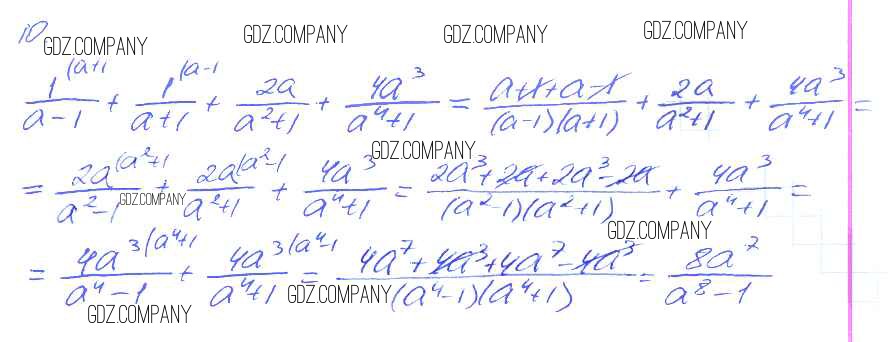 10
GDZ.COMPANY GDZ.COMPANY GDZ.COMPANY GDZ.COMPANY
1^(a+1 / a-1 + 1^(a-1 / a+1 + 2a / a²+1 + 4a³ / a⁴+1 = a+1+a-1 / (a-1)(a+1) + 2a / a²+1 + 4a³ / a⁴+1 =
GDZ.COMPANY
= 2a^(a²+1 / a²-1 + 2a^(a²-1 / a²+1 + 4a³ / a⁴+1 = 2a³+2a+2a³-2a / (a²-1)(a²+1) + 4a³ / a⁴+1 =
GDZ.COMPANY
GDZ.COMPANY
= 4a³^(a⁴+1 / a⁴-1 + 4a³^(a⁴-1 / a⁴+1 = 4a⁷+4a³+4a⁷-4a³ / (a⁴-1)(a⁴+1) = 8a⁷ / a⁸-1
GDZ.COMPANY
GDZ.COMPANY